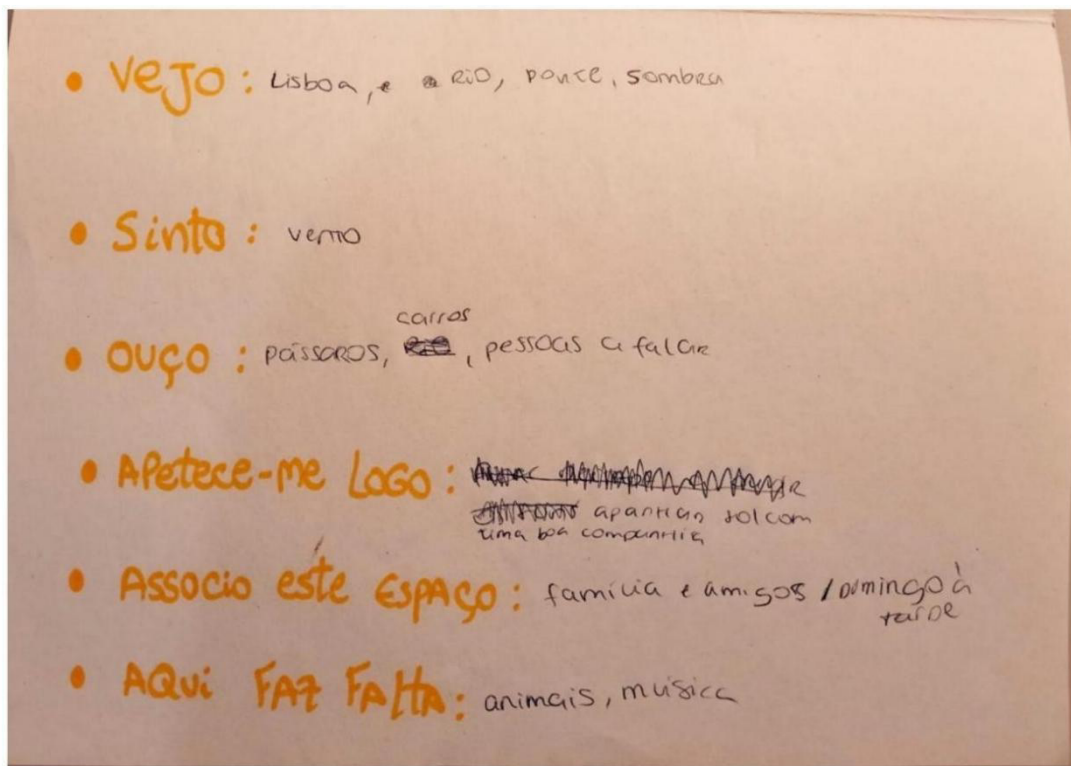 • VEJO: Lisboa, RIO, PONTE, sombra
• Sinto: vento
• OUÇO: pássaros, carros, pessoas a falar
• APetece-me LOGO:
apanhar sol com
uma boa companhia
• Associo este ESPAÇO: família e amigos / Domingo à
tarde
• AQui FAZ FAltA: animais, música